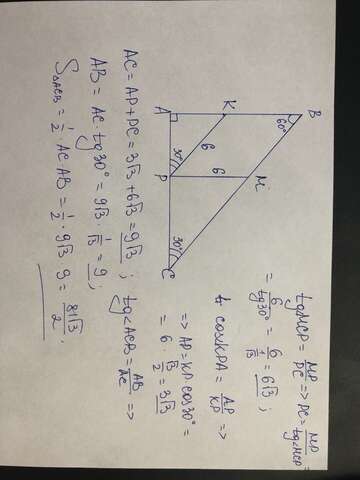 B
60°
K
M
6
6
A
30°
P
30°
C
tg∠MCP = MP/PC => PC = MP/tg∠MCP =
= 6/tg30° = 6/(1/√3) = 6√3;
cos∠KPA = AP/KP =>
=> AP = KP·cos30° =
= 6 · √3/2 = 3√3
AC = AP + PC = 3√3 + 6√3 = 9√3; tg∠ACB = AB/AC =>
AB = AC · tg30° = 9√3 · 1/√3 = 9;
S△ACB = 1/2 · AC · AB = 1/2 · 9√3 · 9 = 81√3/2.